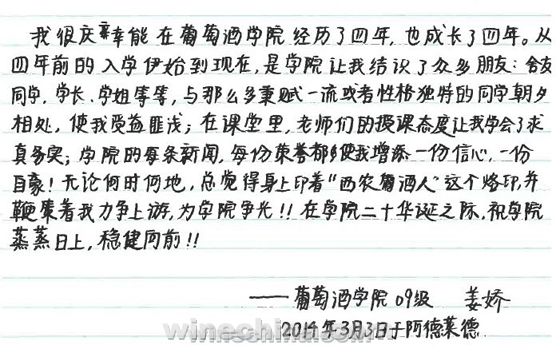 我很庆幸能在葡萄酒学院经历了四年，也成长了四年。从
四年前的入学伊始到现在，是学院让我结识了众多朋友：舍友
同学、学长、学姐等等，与那么多秉赋一流或者性格独特的同学朝夕
相处，使我受益匪浅；在课堂里，老师们的授课态度让我学会了求
真务实；学院的每条新闻，每份荣誉都使我增添一份信心，一份
自豪！无论何时何地，总觉得身上印着“西农葡酒人”这个烙印并
鞭策着我力争上游，为学院争光！！在学院二十华诞之际，祝学院
蒸蒸日上，稳健向前！！
——葡萄酒学院09级 姜娇
2014年3月3日于阿德莱德
www.winechina.com